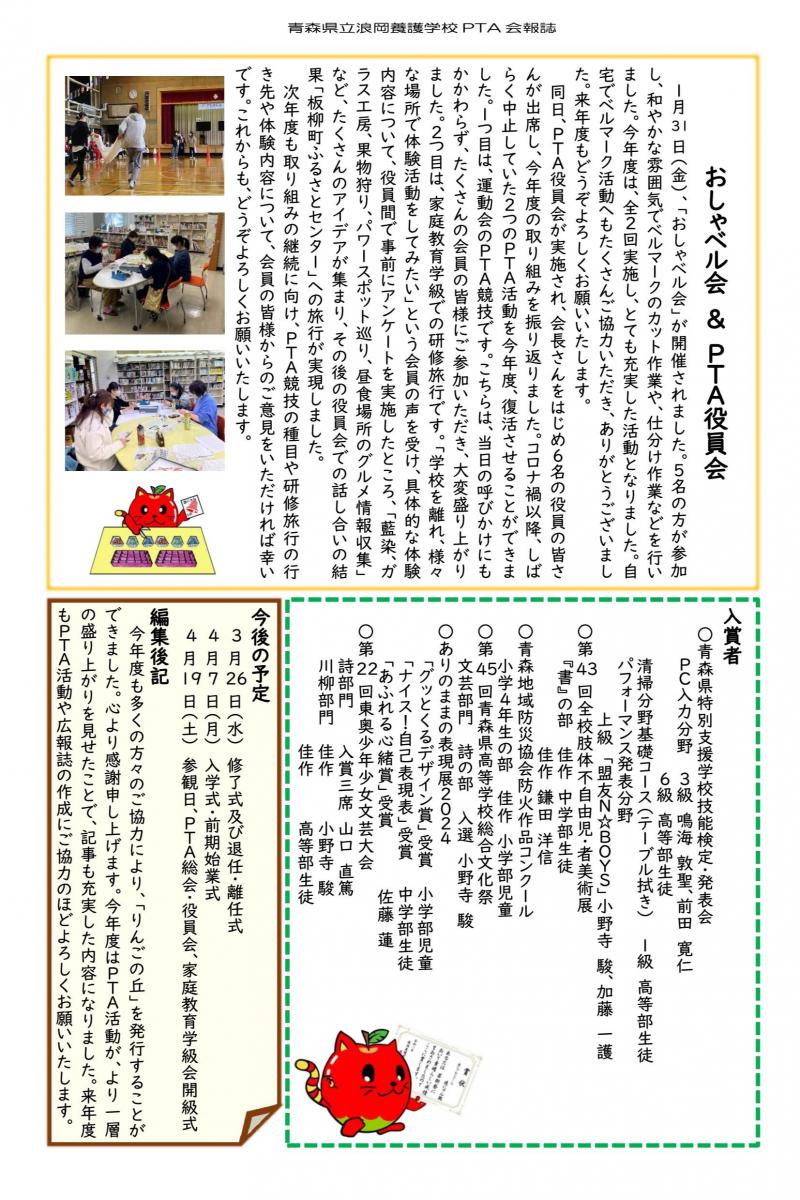 青森県立浪岡養護学校PTA会報誌
おしゃベル会 & PTA役員会
1月31日(金)、「おしゃベル会」が開催されました。5名の方が参加
し、和やかな雰囲気でベルマークのカット作業や、仕分け作業などを行い
ました。今年度は、全2回実施し、とても充実した活動となりました。自
宅でベルマーク活動へもたくさんご協力いただき、ありがとうございまし
た。来年度もどうぞよろしくお願いいたします。
同日、PTA役員会が実施され、会長さんをはじめ6名の役員の皆さ
んが出席し、今年度の取り組みを振り返りました。コロナ禍以降、しば
らく中止していた2つのPTA活動を今年度、復活させることができま
した。1つ目は、運動会のPTA競技です。こちらは、当日の呼びかけにも
かかわらず、たくさんの会員の皆様にご参加いただき、大変盛り上がり
ました。2つ目は、家庭教育学級での研修旅行です。「学校を離れ、様々
な場所で体験活動をしてみたい」という会員の声を受け、具体的な体験
内容について、役員間で事前にアンケートを実施したところ、「藍染、ガ
ラス工房、果物狩り、パワースポット巡り、昼食場所のグルメ情報収集」
など、たくさんのアイデアが集まり、その後の役員会での話し合いの結
果「板柳町ふるさとセンター」への旅行が実現しました。
次年度も取り組みの継続に向け、PTA競技の種目や研修旅行の行
き先や体験内容について、会員の皆様からのご意見をいただければ幸い
です。これからも、どうぞよろしくお願いいたします。
入賞者
○青森県特別支援学校技能検定・発表会
PC入力分野 3級 鳴海 敦聖、前田 寛仁
6級 高等部生徒
清掃分野基礎コース(テーブル拭き) 1級 高等部生徒
パフォーマンス発表分野
上級 「盟友N☆BOYS」小野寺 駿、加藤 一護
○第43回全校肢体不自由児・者美術展
『書』の部 佳作 中学部生徒
佳作 鎌田 洋信
○青森地域防災協会防火作品コンクール
小学4年生の部 佳作 小学部児童
○第45回青森県高等学校総合文化祭
文芸部門 詩の部 入選 小野寺 駿
○ありのままの表現展2024
「グッとくるデザイン賞」受賞 小学部児童
「ナイス!自己表現表」受賞 中学部生徒
「あふれる心緒賞」受賞 佐藤 蓮
○第22回東奥少年少女文芸大会
詩部門 入賞三席 山口 直篤
佳作 小野寺 駿
川柳部門 佳作 高等部生徒
賞状
今後の予定
3月26日(水) 修了式及び退任・離任式
4月7日(月) 入学式・前期始業式
4月19日(土) 参観日、PTA総会・役員会、家庭教育学級会開級式
編集後記
今年度も多くの方々のご協力により、「りんごの丘」を発行することが
できました。心より感謝申し上げます。今年度はPTA活動が、より一層
の盛り上がりを見せたことで、記事も充実した内容になりました。来年度
もPTA活動や広報誌の作成にご協力のほどよろしくお願いいたします。